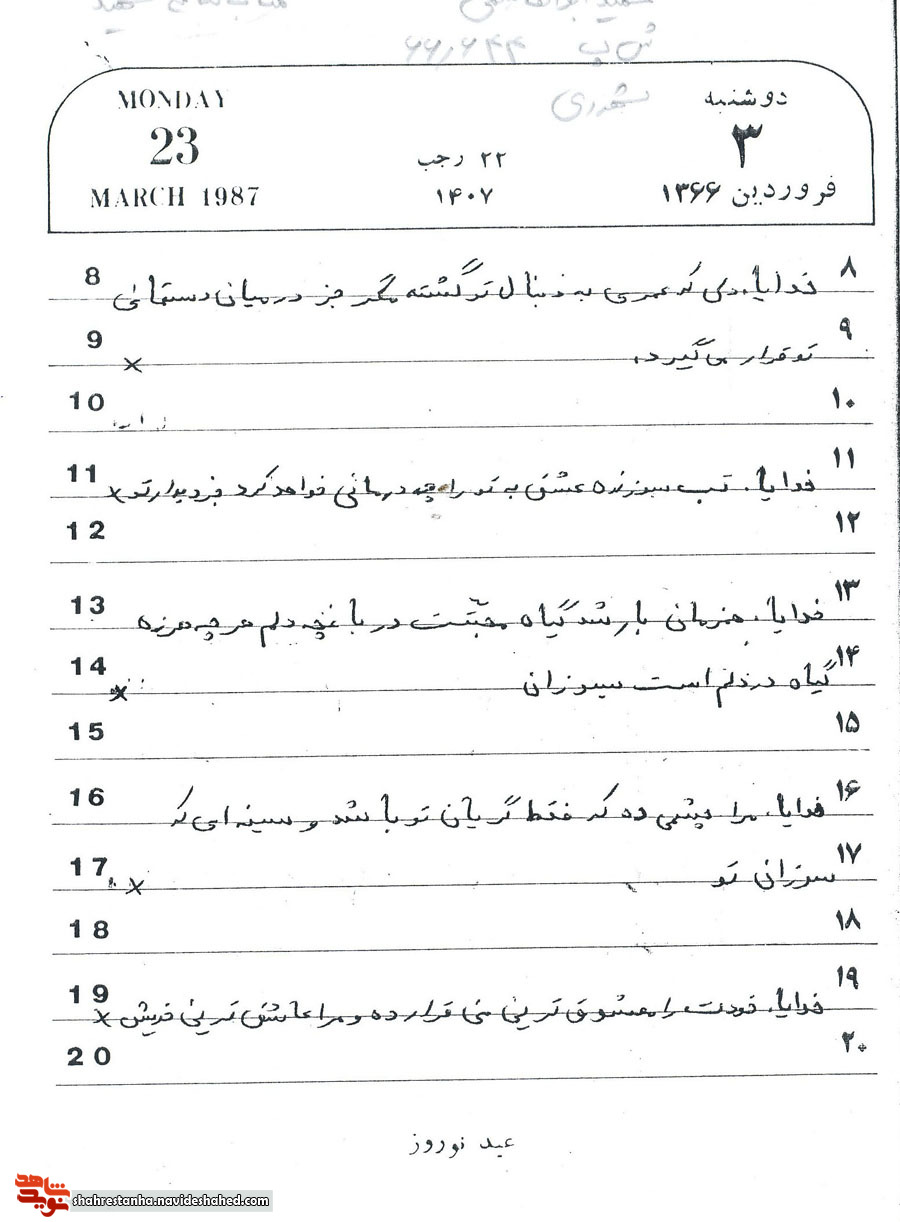 ش پ ۶۶٫۶۴۴
MONDAY
23
MARCH 1987
۲۲ رجب
۱۴۰۷
دوشنبه
۳
فروردین ۱۳۶۶
8 خدایا، دلی که عمری به دنبال تو گشته مگر جز در میان دستهانی ۸
9 تو قرار می گیرد. × ۹
10 ۱۰
11 خدایا، تب سوزنده عشق به تو را چه درمانی خواهد کرد جز دیدار تو × ۱۱
12 ۱۲
13 خدایا، همزمان با رشد گیاه محبّتت در باغچه دلم هر چه هرزه ۱۳
14 گیاه در دلم است سوزان × ۱۴
15 ۱۵
16 خدایا، مرا چشمی ده که فقط گریان تو باشد و سینه ای که ۱۶
17 سوزان تو × ۱۷
18 ۱۸
19 خدایا، خودت را معشوق ترین من قرار ده و مرا عاشق ترین خویش × ۱۹
20 ۲۰
عید نوروز
نوید شاهد
shahrestanha.navideshahed.com